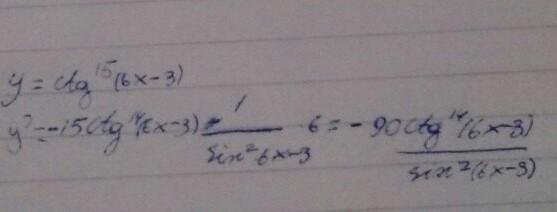 y = ctg¹⁵(6x-3)
y' = -15ctg¹⁴(6x-3) · 1/sin²6x-3 6 = - 90ctg¹⁴(6x-3)/sin²(6x-3)